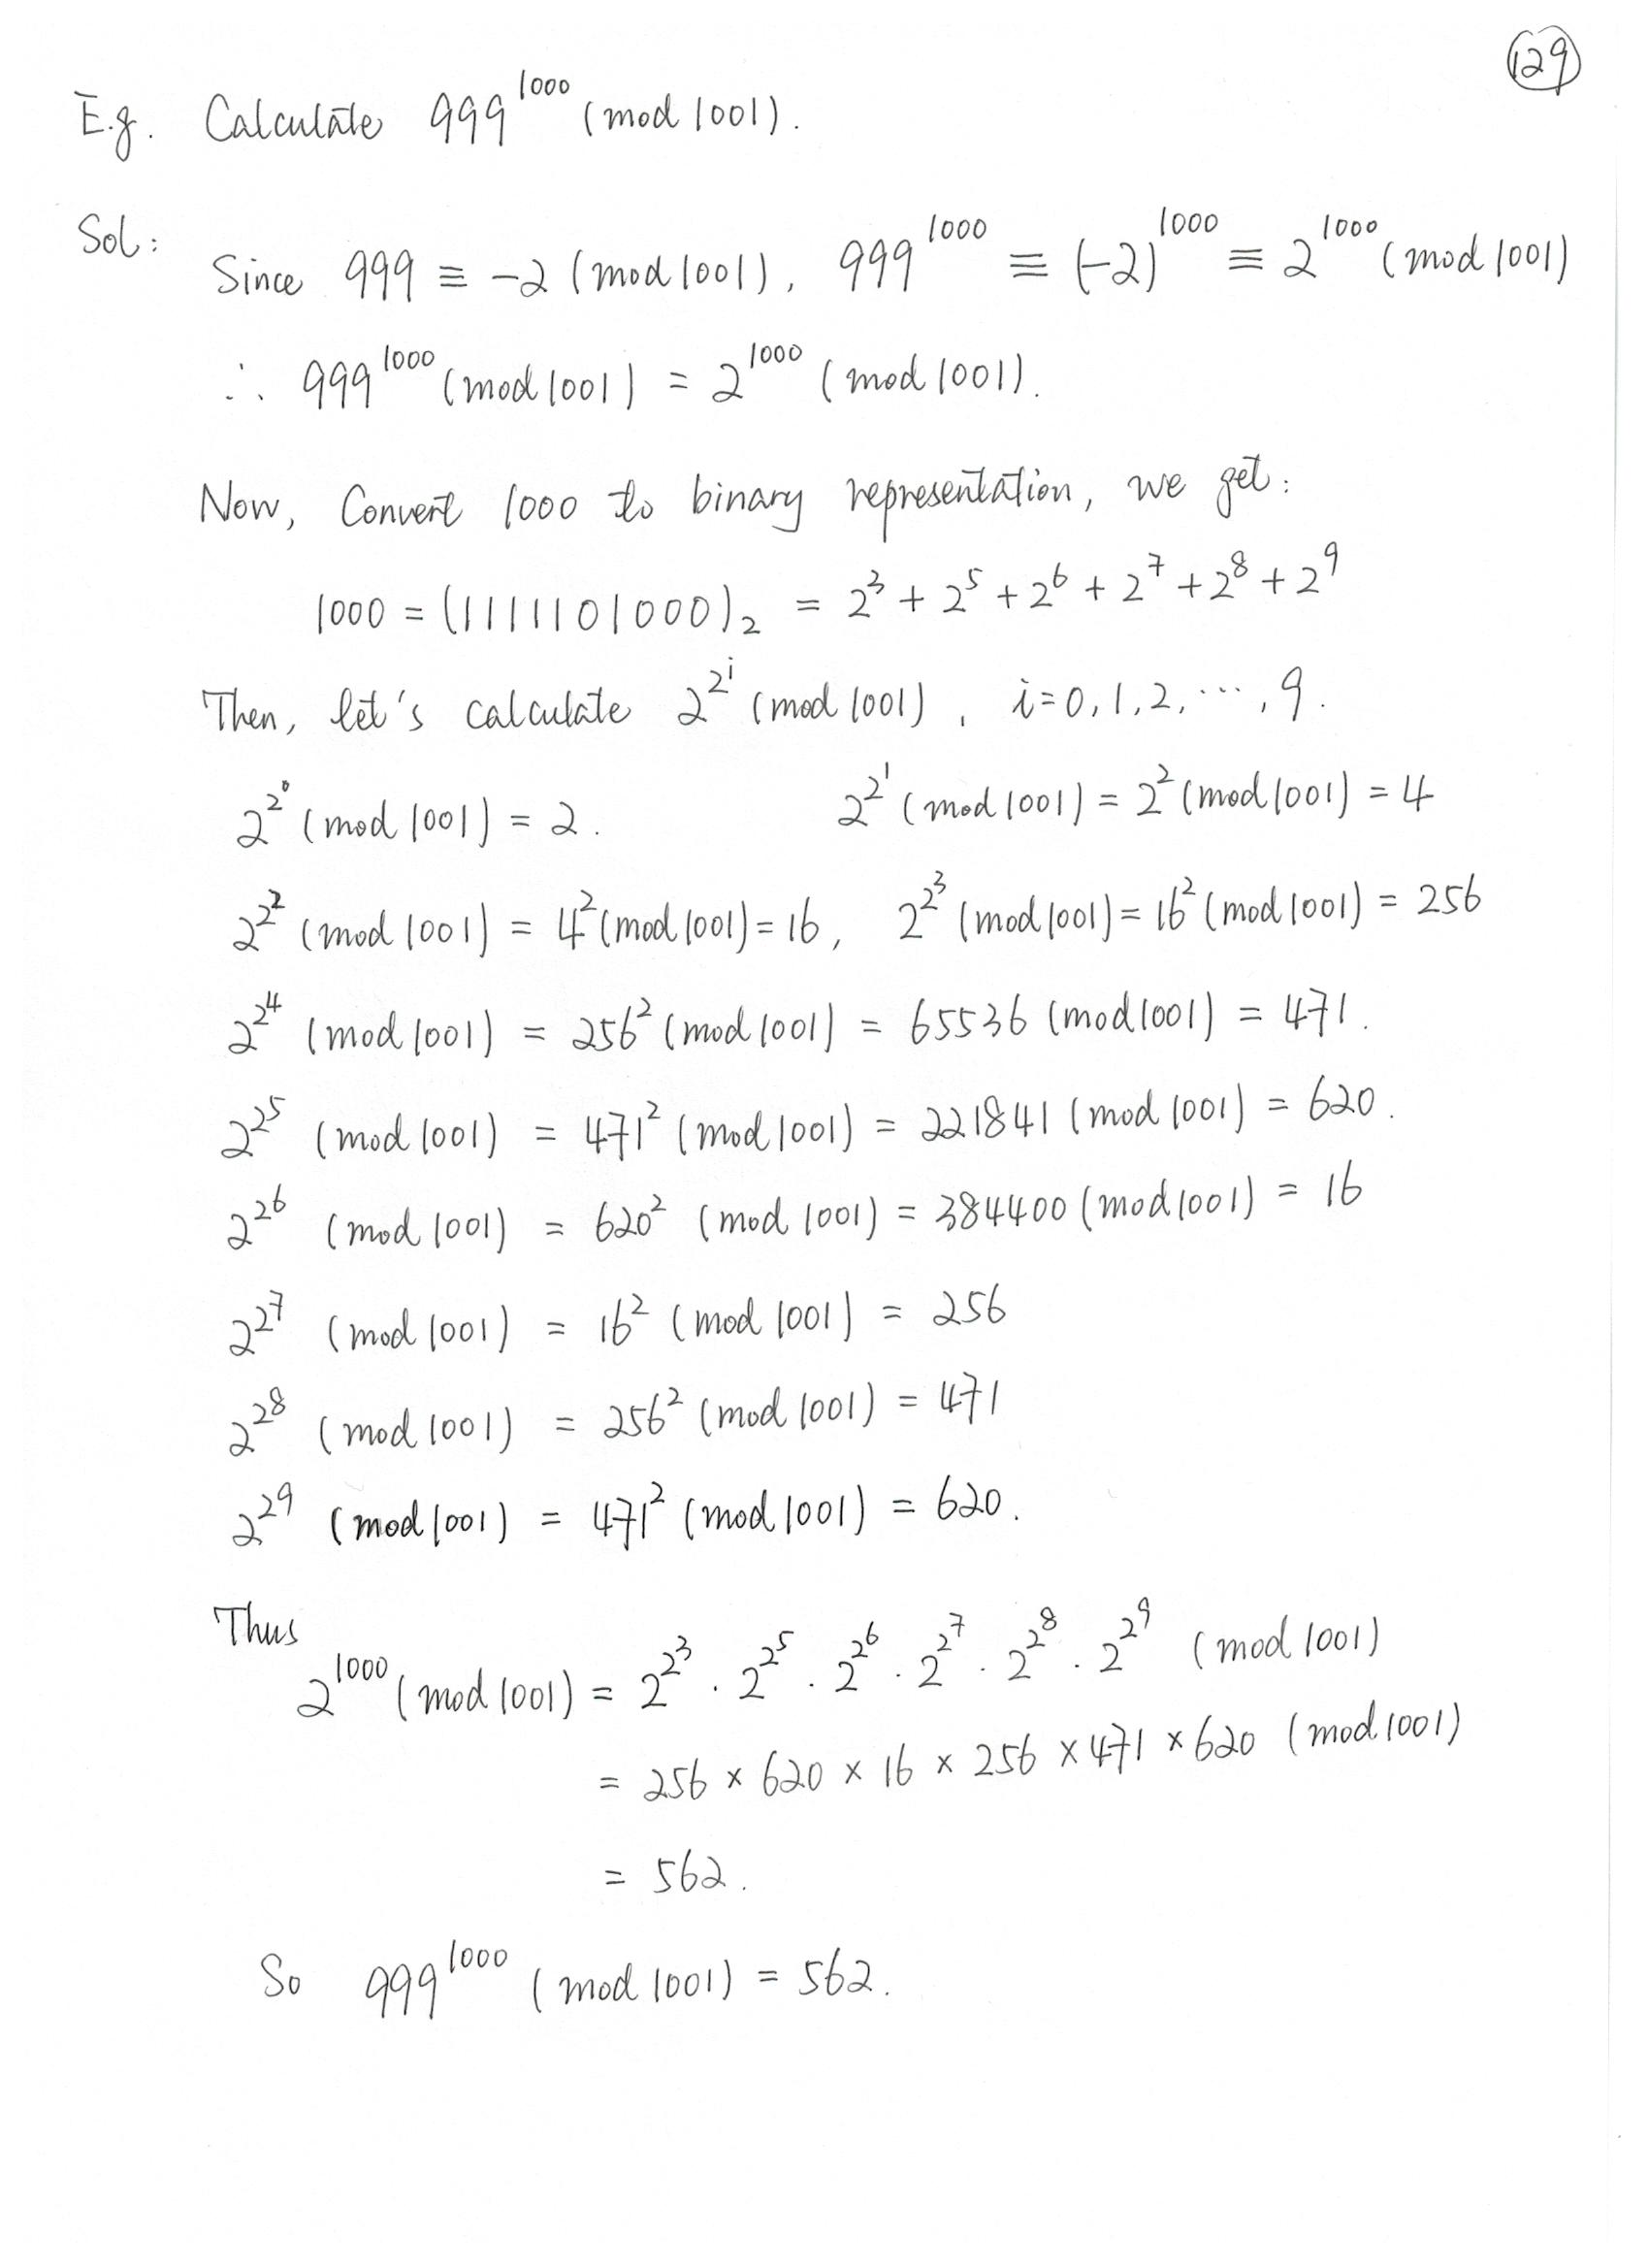 129
E.g. Calculate 999^1000 (mod 1001).
Sol:
Since 999 ≡ -2 (mod 1001), 999^1000 ≡ (-2)^1000 ≡ 2^1000 (mod 1001)
∴ 999^1000 (mod 1001) = 2^1000 (mod 1001).
Now, Convert 1000 to binary representation, we get:
1000 = (1111101000)_2 = 2^3 + 2^5 + 2^6 + 2^7 + 2^8 + 2^9
Then, let's calculate 2^2^i (mod 1001), i=0,1,2,⋯,9.
2^2^0 (mod 1001) = 2. 2^2^1 (mod 1001) = 2^2 (mod 1001) = 4
2^2^2 (mod 1001) = 4^2 (mod 1001) = 16, 2^2^3 (mod 1001) = 16^2 (mod 1001) = 256
2^2^4 (mod 1001) = 256^2 (mod 1001) = 65536 (mod 1001) = 471.
2^2^5 (mod 1001) = 471^2 (mod 1001) = 221841 (mod 1001) = 620.
2^2^6 (mod 1001) = 620^2 (mod 1001) = 384400 (mod 1001) = 16
2^2^7 (mod 1001) = 16^2 (mod 1001) = 256
2^2^8 (mod 1001) = 256^2 (mod 1001) = 471
2^2^9 (mod 1001) = 471^2 (mod 1001) = 620.
Thus
2^1000 (mod 1001) = 2^2^3 · 2^2^5 · 2^2^6 · 2^2^7 · 2^2^8 · 2^2^9 (mod 1001)
= 256 × 620 × 16 × 256 × 471 × 620 (mod 1001)
= 562.
So 999^1000 (mod 1001) = 562.